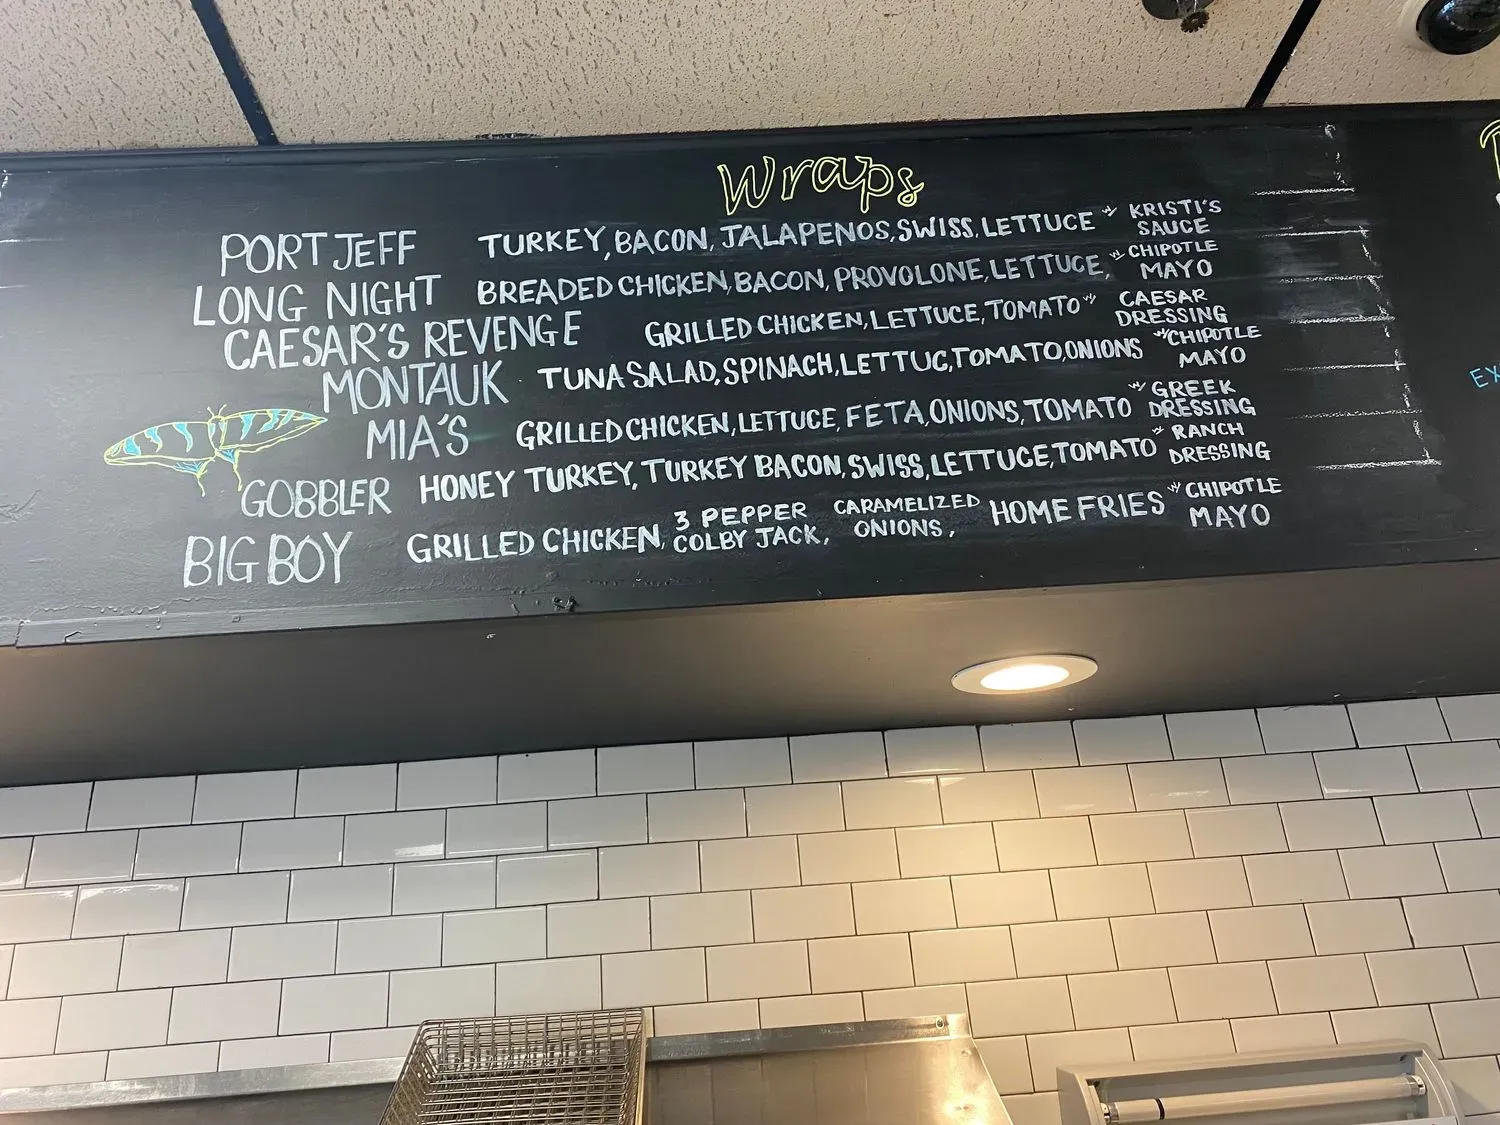 Wraps
PORT JEFF TURKEY, BACON, JALAPENOS, SWISS, LETTUCE W/ KRISTI'S SAUCE
LONG NIGHT BREADED CHICKEN, BACON, PROVOLONE, LETTUCE, W/ CHIPOTLE MAYO
CAESAR'S REVENGE GRILLED CHICKEN, LETTUCE, TOMATO W/ CAESAR DRESSING
MONTAUK TUNA SALAD, SPINACH, LETTUC, TOMATO, ONIONS W/ CHIPOTLE MAYO
MIA'S GRILLED CHICKEN, LETTUCE, FETA, ONIONS, TOMATO W/ GREEK DRESSING
GOBBLER HONEY TURKEY, TURKEY BACON, SWISS, LETTUCE, TOMATO W/ RANCH DRESSING
BIG BOY GRILLED CHICKEN, 3 PEPPER COLBY JACK, CARAMELIZED ONIONS, HOME FRIES W/ CHIPOTLE MAYO